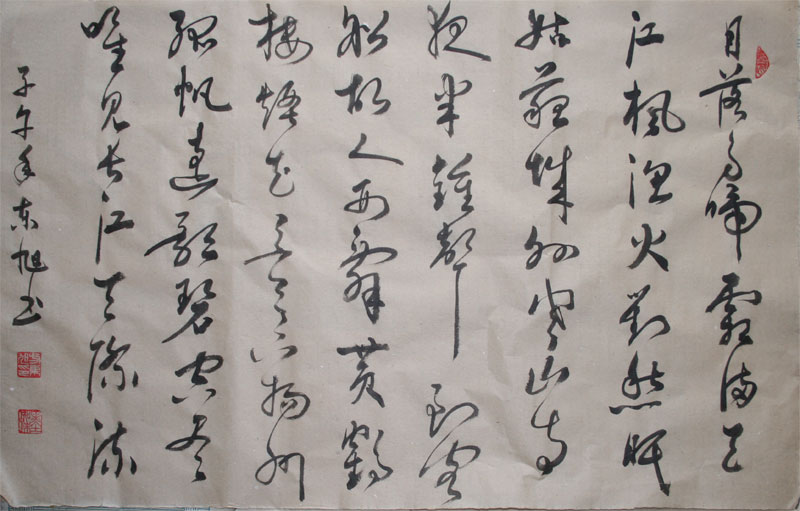 月落乌啼霜满天
江枫渔火對愁眠
姑蘇城外寒山寺
夜半鐘聲到客
船故人西辞黄鹤
楼烟花三月下扬州
孤帆遠影碧空尽
唯见长江天际流
子午年东旭书